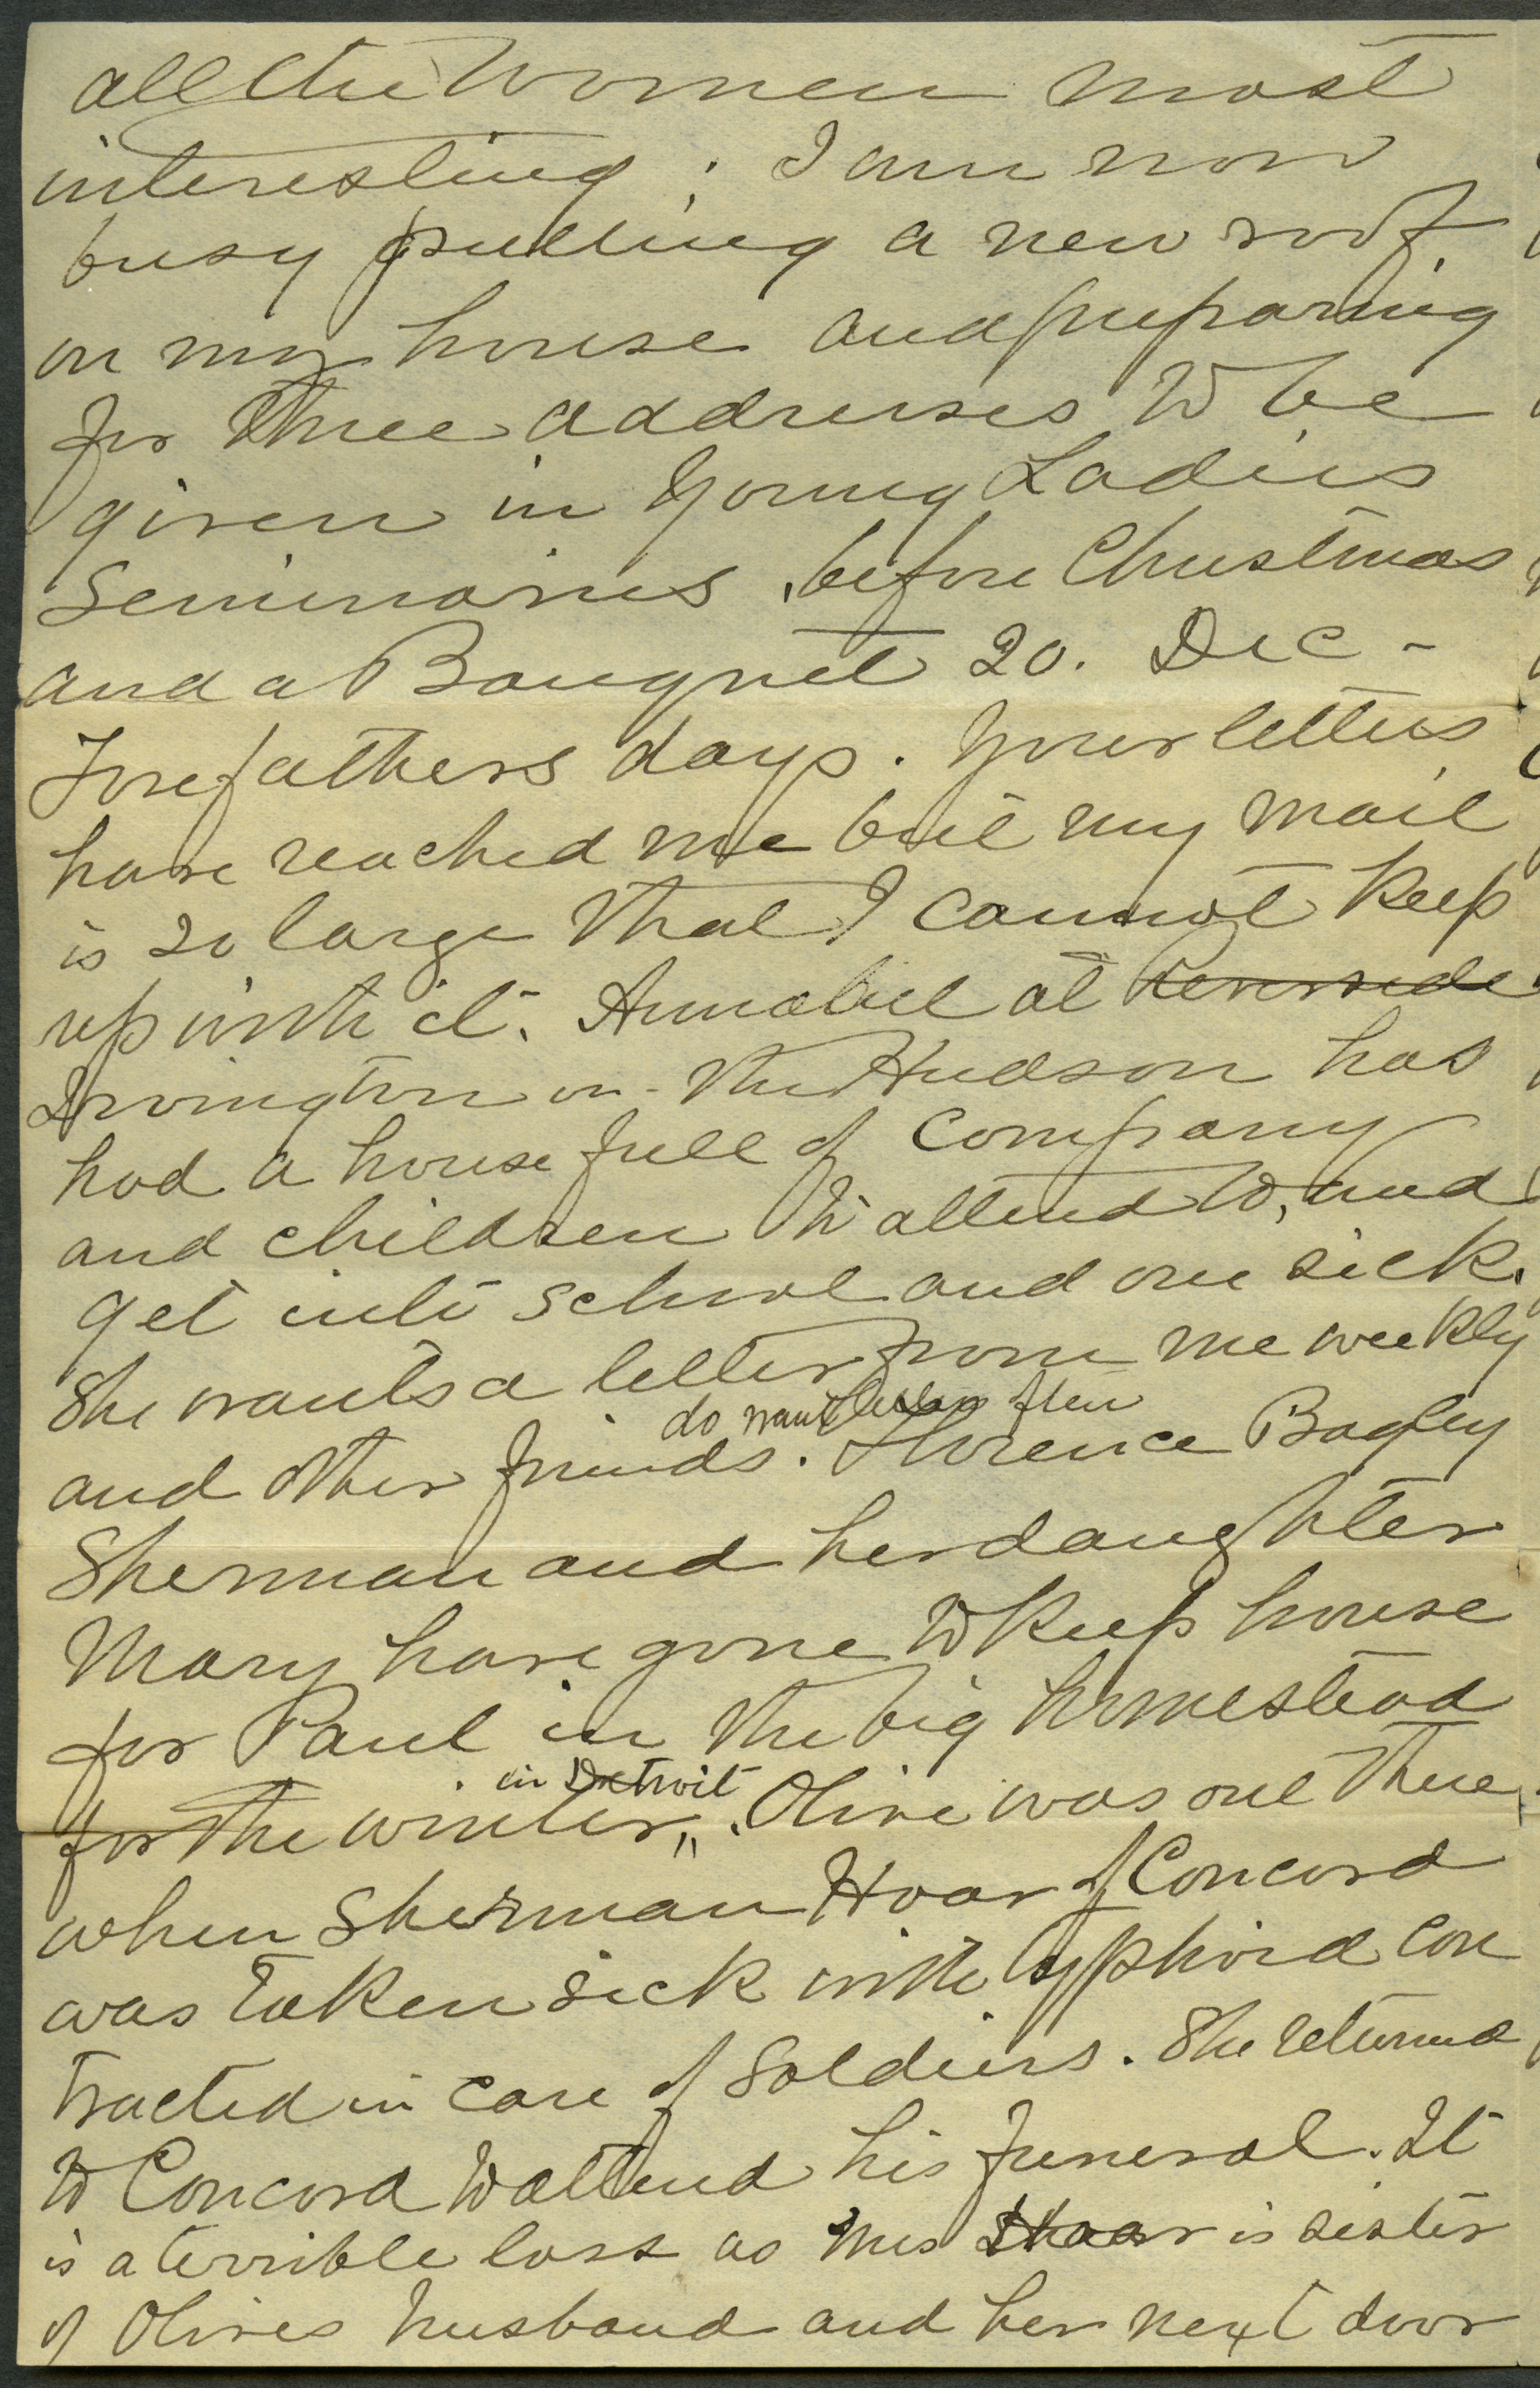 all the women most
interesting; I am now
busy putting a new roof
on my house and preparing
for three addresses to be
given in Young Ladies
Seminaries, before Christmas
and a Banquet 20. Dec -
Forefathers days. Your letters
have reached me but my mail
is so large that I cannot keep
up with it. Annabel at Riverside
Irvington-on-the Hudson has
had a house full of company
and children to attend to, and
get into school and one sick.
She wants a letter from me weekly
do want often
and other friends. Florence Bagley
Sherman and her daughter
Mary have gone to keep house
for Paul in the big homestead
in Detroit
for the winter,,. Olive was out there
when Sherman Hoar of Concord
was taken sick with typhoid con
tracted in care of Soldiers. She returned
to Concord to attend his funeral. It
is a terrible loss as Mrs Hoar is sister
of Olives husband and her next door